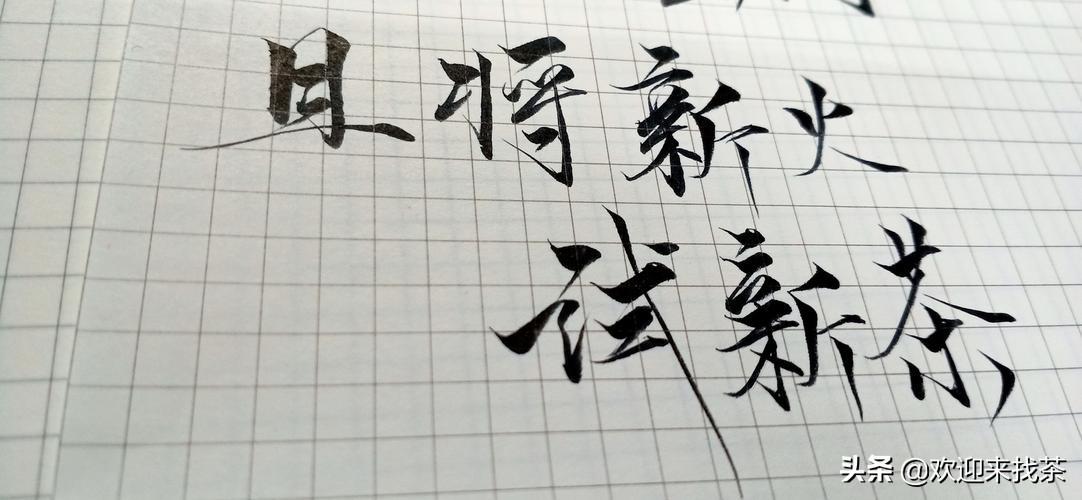 且将新火
试新茶
头条 @欢迎来找茶